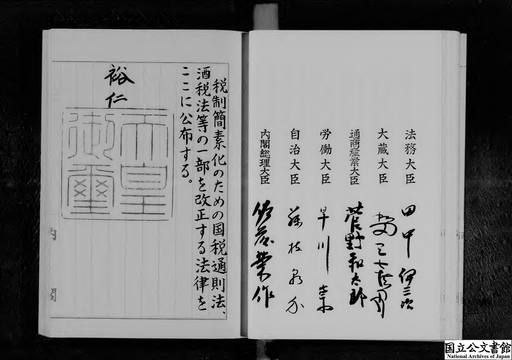 法務大臣 田中伊三次
大蔵大臣 水田三喜男
通商産業大臣 菅野和太郎
労働大臣 早川崇
自治大臣 藤枝泉介
内閣総理大臣 佐藤榮作
税制簡素化のための国税通則法、
酒税法等の一部を改正する法律を
ここに公布する。
裕仁
天皇
御璽
内閣
国立公文書館
National Archives of Japan